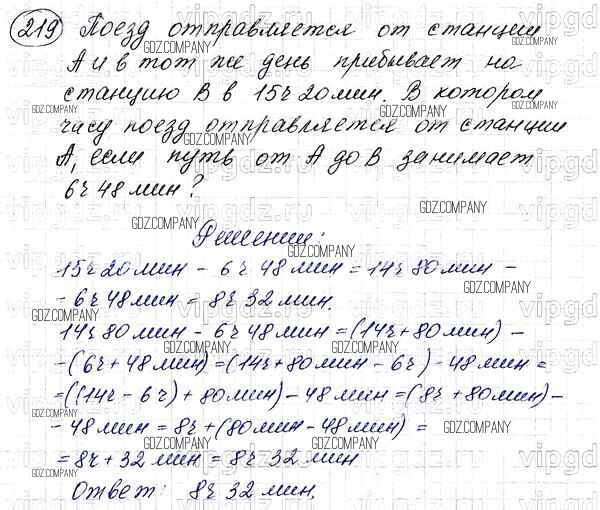 219) Поезд отправляется от станции
А и в тот же день прибывает на
станцию В в 15ч 20мин. В котором
часу поезд отправляется от станции
А, если путь от А до В занимает
6ч 48 мин?
Решение:
15ч 20мин - 6ч 48 мин = 14ч 80мин -
- 6ч 48мин = 8ч 32 мин.
14ч 80мин - 6ч 48 мин = (14ч + 80мин) -
-(6ч + 48мин) = (14ч + 80мин - 6ч) - 48мин =
=((14ч - 6ч) + 80мин) - 48 мин = (8ч + 80мин) -
- 48мин = 8ч + (80мин - 48мин) =
= 8ч + 32 мин = 8ч 32 мин
Ответ: 8ч 32 мин.
GDZ.COMPANY
vipgdz.ru